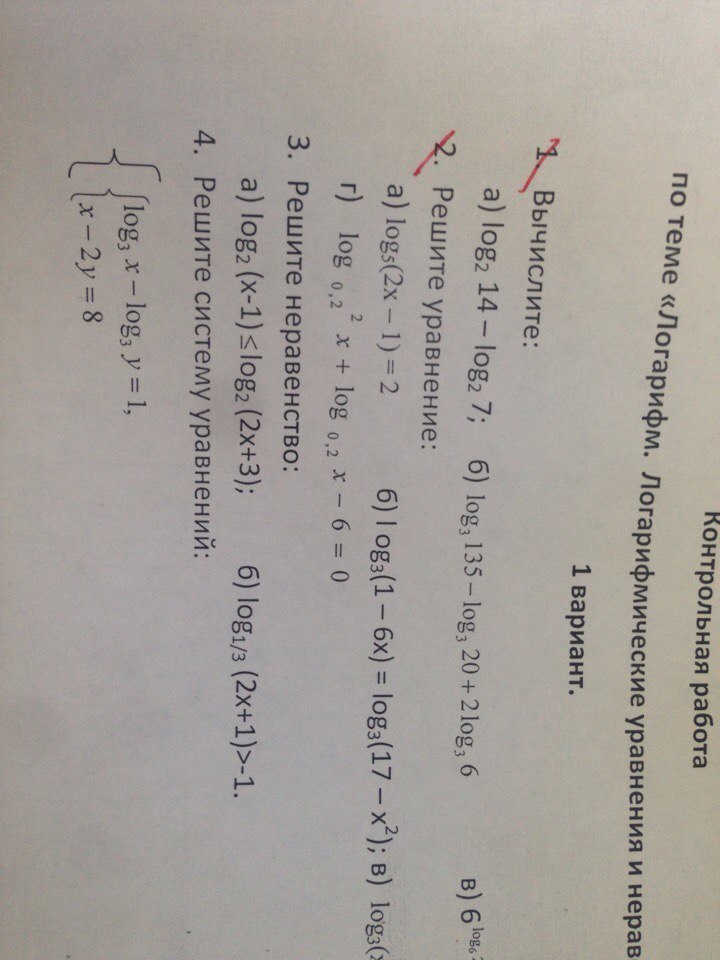 Контрольная работа
по теме «Логарифм. Логарифмические уравнения и нерав
1 вариант.
1. Вычислите:
а) log₂ 14 – log₂ 7; б) log₃ 135 – log₃ 20 + 2log₃ 6 в) 6^log₆
2. Решите уравнение:
а) log₅(2x – 1) = 2 б) log₃(1 – 6x) = log₃(17 – x²); в) log₃(
г) log ₀,₂² x + log ₀,₂ x – 6 = 0
3. Решите неравенство:
а) log₂ (x-1) ≤ log₂ (2x+3); б) log₁/₃ (2x+1)>-1.
4. Решите систему уравнений:
{ { log₃ x – log₃ y = 1,
x – 2y = 8